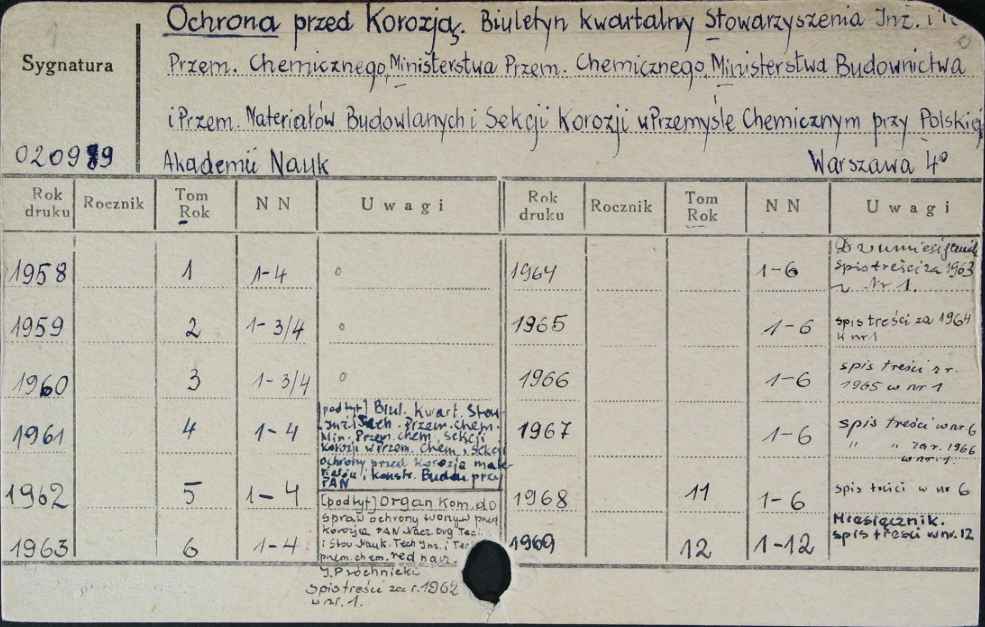 Ochrona przed Korozją. Biuletyn kwartalny Stowarzyszenia Inż. i
Sygnatura
Przem. Chemicznego, Ministerstwa Przem. Chemicznego, Ministerstwa Budownictwa
i Przem. Materiałów Budowlanych i Sekcji Korozji w Przemyśle Chemicznym przy Polskiej
020989 Akademii Nauk Warszawa 4°
Rok druku Rocznik Tom Rok NN Uwagi Rok druku Rocznik Tom Rok NN Uwagi
1958 1 1-4 1964 1-6 spis treści za 1963
w Nr 1.
1959 2 1-3/4 1965 1-6 spis treści za 1964
w nr 1
1960 3 1-3/4 1966 1-6 spis treści z r.
1965 w nr 1
[podtyt] Biul. kwart. Stow.
Inż i Tech. Przem. chem.
Min. Przem. chem, Sekcji
1961 4 1-4 Korozji w Przem. Chem, i Sekcji 1967 1-6 spis treści w nr 6
" " za r. 1966
w nr. 1.
ochrony przed korozją mate-
riałów i konstr. Budow przy
PAN
1962 5 1-4 [podtyt] Organ Kom. do 1968 11 1-6 spis treści w nr 6
spraw ochrony tworzyw przed
korozją PAN Nacz Org Tech.
1963 6 1-4 i Stow Nauk. Tech Inż. i Tech 1969 12 1-12 Miesięcznik.
spis treści w nr. 12
przem. chem. red nacz.
J. Prochnicki
spis treści za r. 1962
w nr. 1.